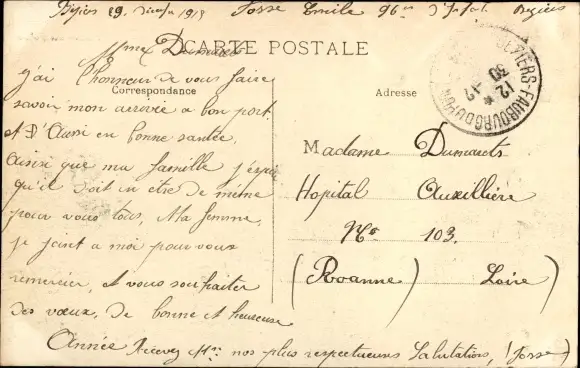 Béziers 29. 1915 Fosse Emile 96e d'Inf. Béziers
CARTE POSTALE
Mme Dumarets
Correspondance
j'ai l'honneur de vous faire
savoir mon arrivée a bon port
et d'Aussi en bonne santée,
ainsi que ma famille j'espère
qu'il doit en etre de même
pour vous tous, Ma femme,
se joint a moi pour vous
remercier, et vous souhaiter
des vœux, de bonne et heureuse
Année Recevez Mme nos plus respectueuses Salutations, (Fosse)
BEZIERS-FAUBOURG DU PONT
12 *
30 -12
Adresse
Madame Dumarets
Hopital Auxillière
No 103.
(Roanne) Loire)